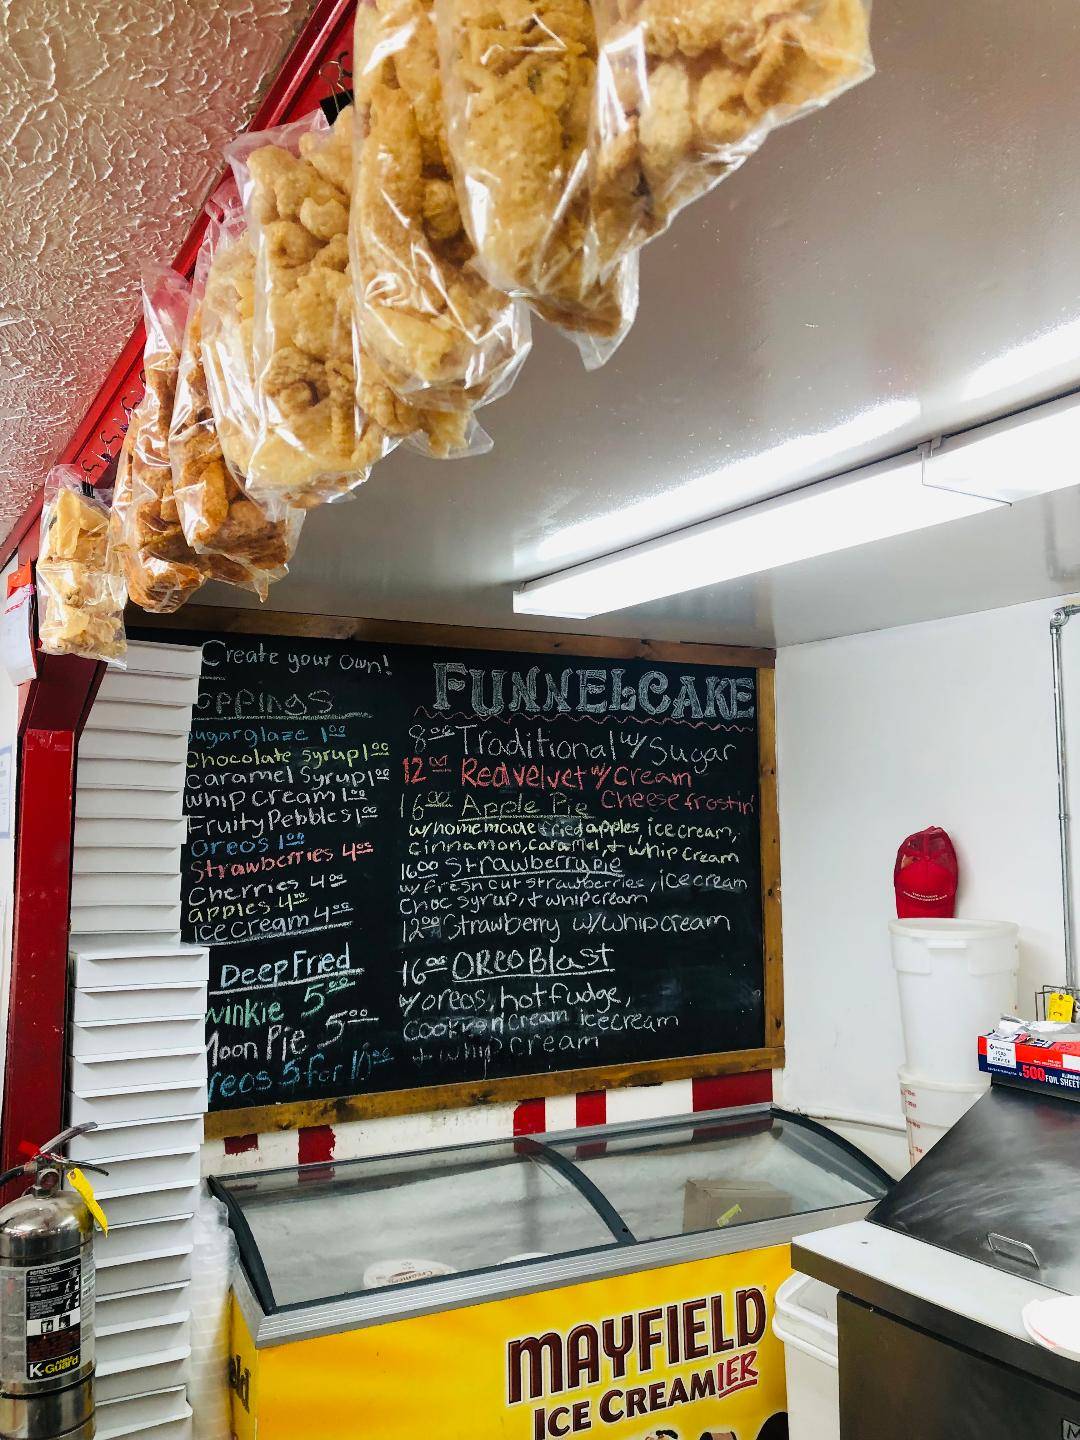 Create your Own!
oppings
ugarglaze 1.00
Chocolate syrup 1.00
Caramel Syrup 1.00
Whip Cream 1.00
Fruity Pebbles 1.00
Oreos 1.00
Strawberries 4.00
Cherries 4.00
apples 4.00
Ice Cream 4.00
Deep Fried
winkie 5.00
Moon Pie 5.00
reos 5 for
FUNNELCAKE
8.00 Traditional w/ Sugar
12.00 Redvelvet w/ Cream
Cheese frostin
16.00 Apple Pie
w/homemade fried apples, ice cream,
cinnamon, caramel, + whip cream
16.00 Strawberry pie
w/ fresh cut strawberries, ice cream
Choc syrup, + whip cream
12.00 Strawberry w/whip cream
16.00 OREO Blast
w/ oreos, hot fudge,
Cook n' cream icecream
+ whip cream
MAYFIELD
ICE CREAMIER
Creamery
500 FOIL SHEET
INSTRUCTIONS
K-Guard